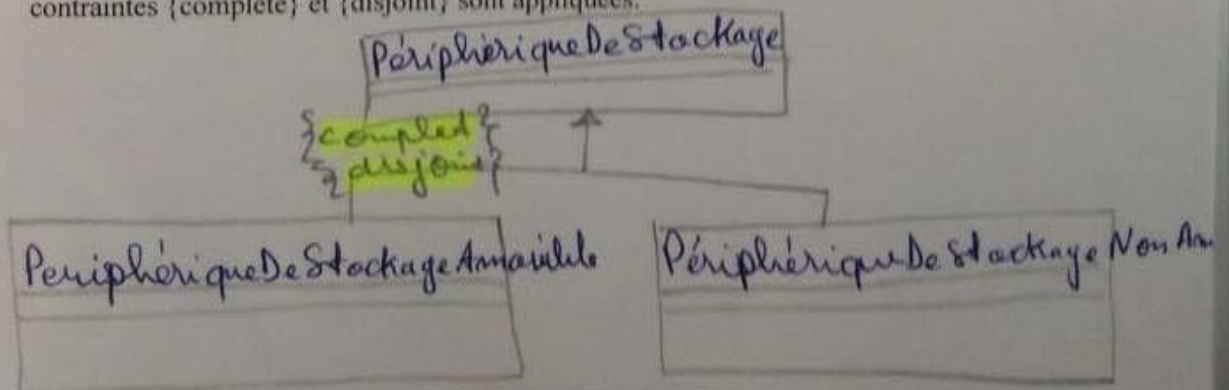 contraintes {complete} et {disjoint} sont appliquées.
PériphériqueDeStockage
{complet}
{disjoint}
PeriphériqueDeStockageAmovible
PériphériqueDeStockageNonAm